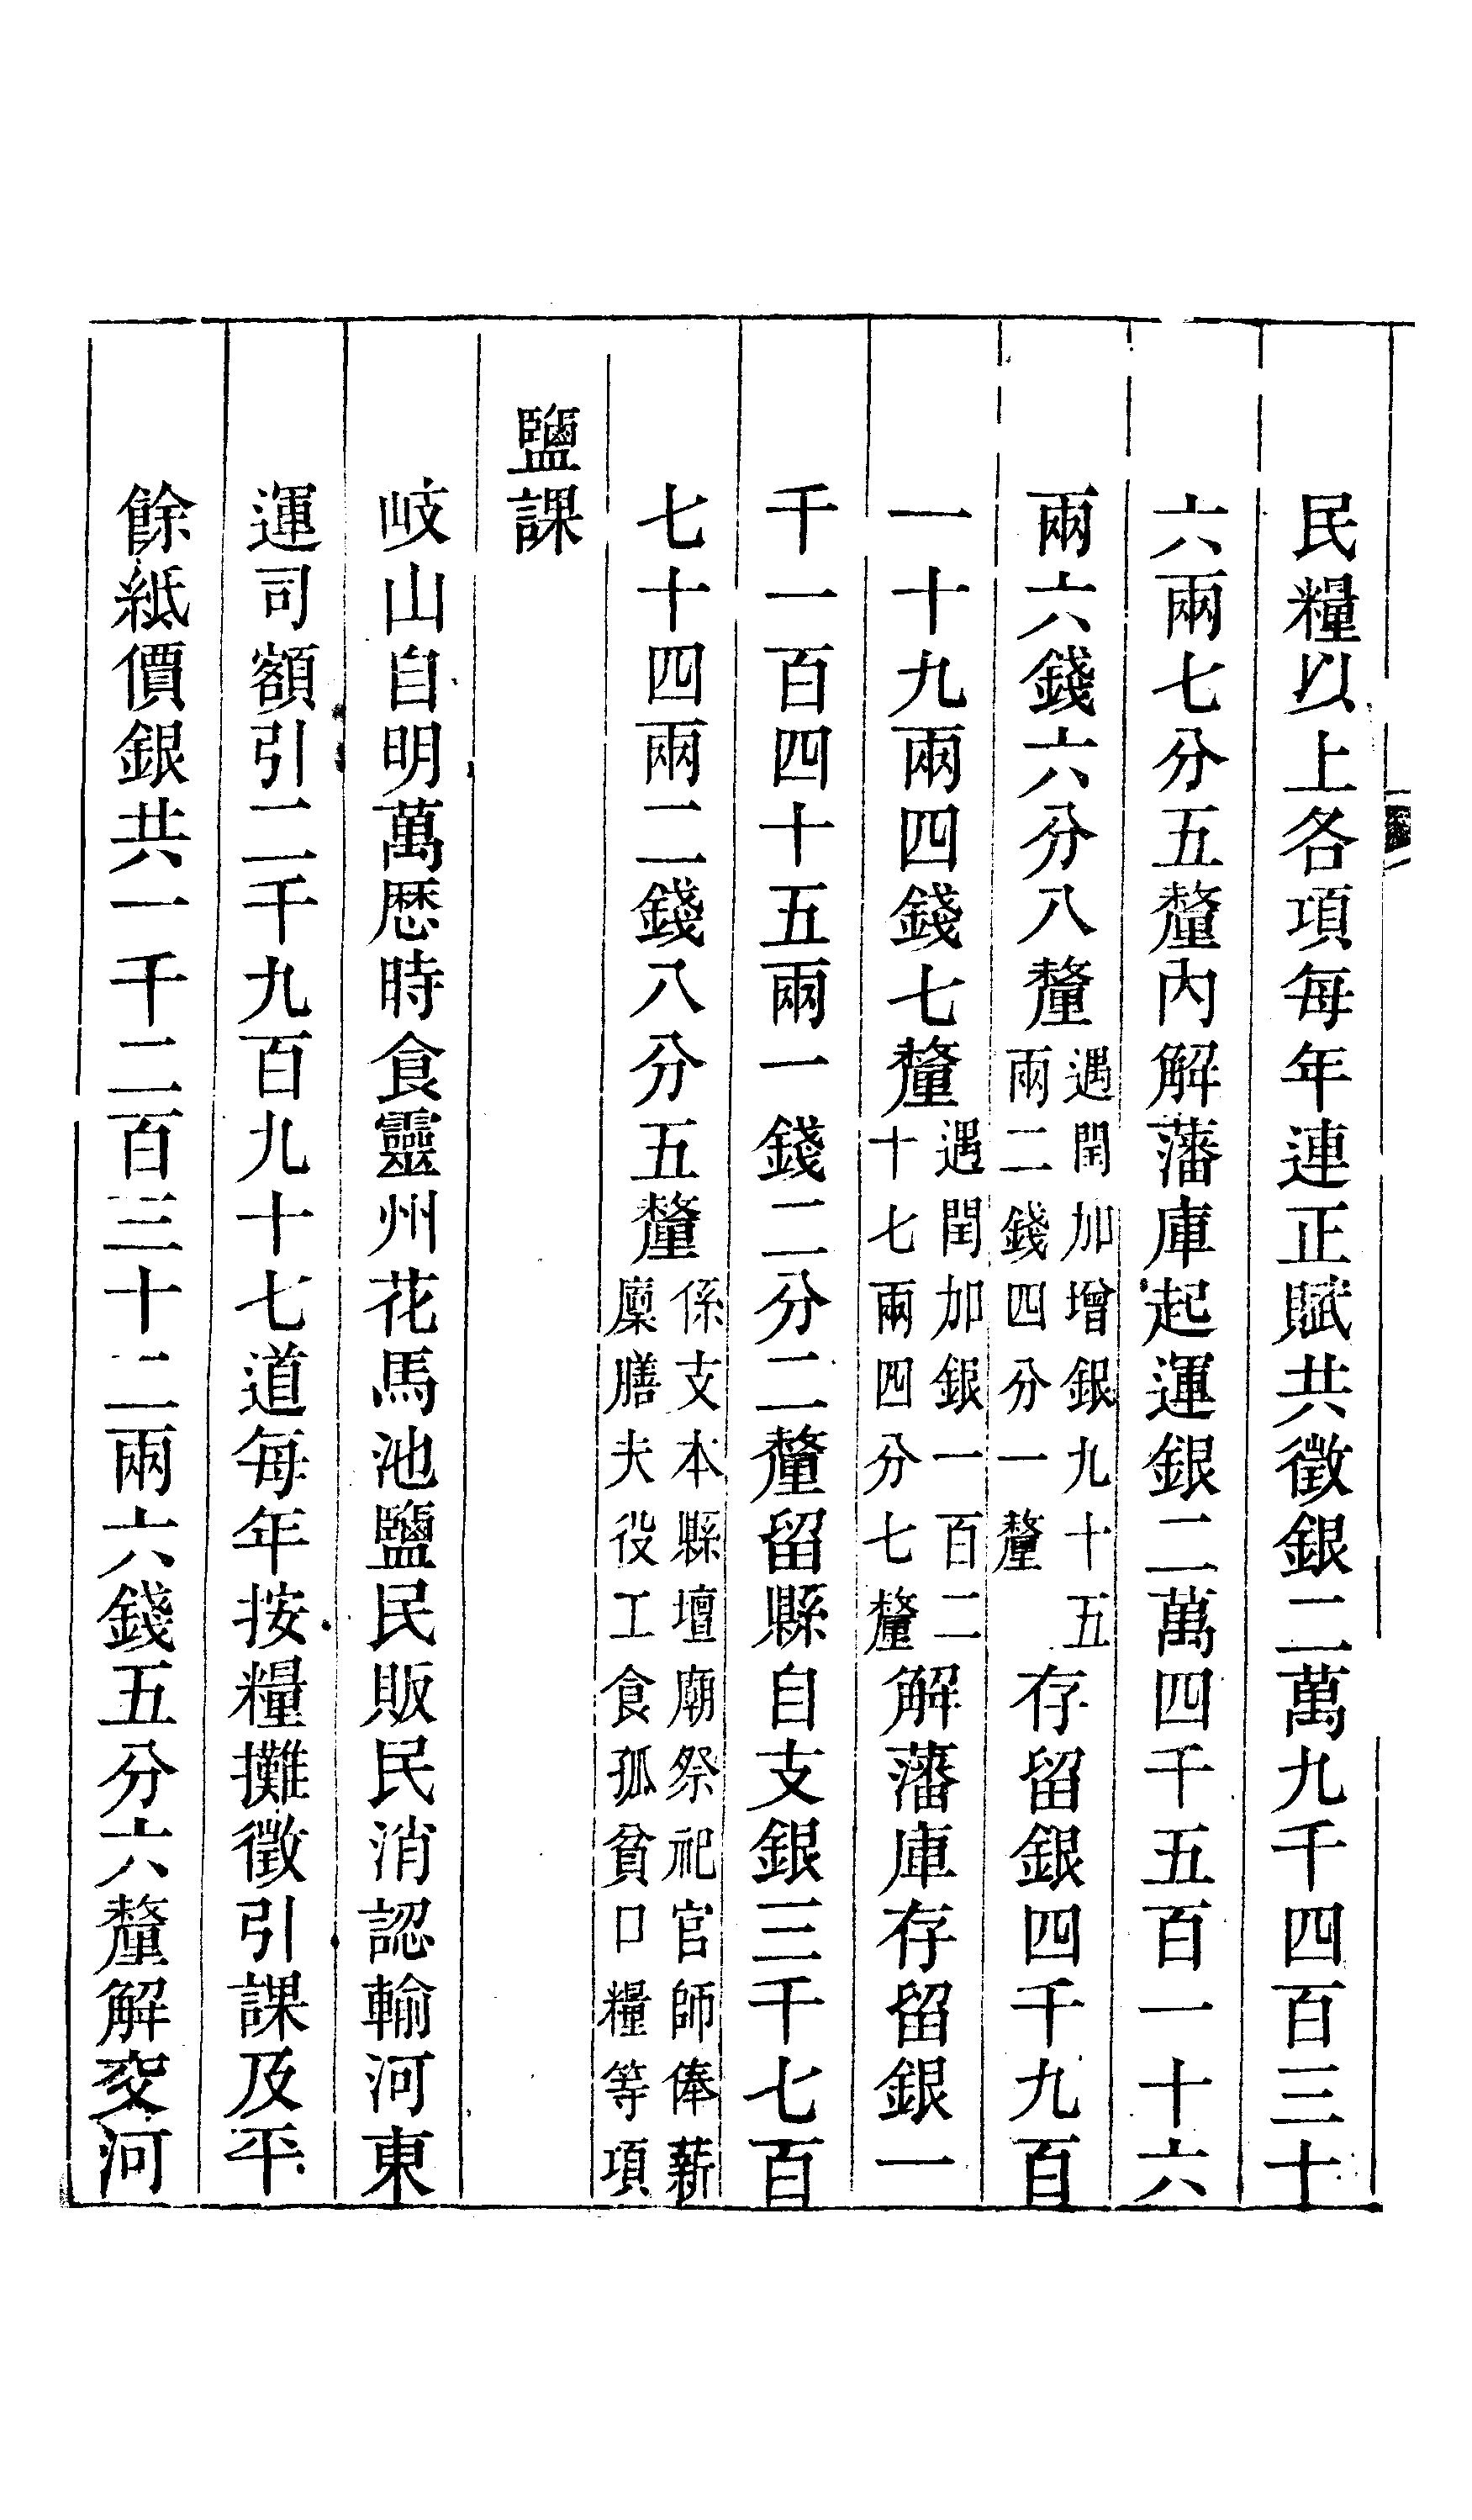 民糧以上各項每年連正賦共徵銀二萬九千四百三十
六兩七分五釐內解藩庫起運銀二萬四千五百一十六
兩六錢六分八釐遇閏加增銀九十五兩二錢四分一釐存留銀四千九百
一十九兩四錢七釐遇閏加銀一百二十七兩四分七釐解藩庫存留銀一
千一百四十五兩一錢二分二釐留縣自支銀三千七百
七十四兩二錢八分五釐係支本縣壇廟祭祀官師俸薪廩膳夫役工食孤貧口糧等項
鹽課
岐山自明萬厯時食靈州花馬池鹽民販民消認輸河東
運司額引二千九百九十七道每年按糧攤徵引課及平
餘紙價銀共一千二百三十二兩六錢五分六釐解交河